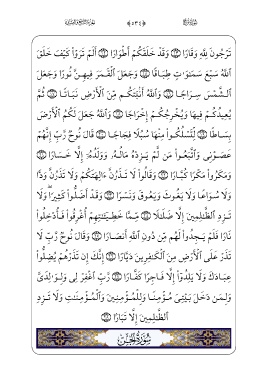 تَرْجُونَ لِلَّهِ وَقَارًا ۝ وَقَدْ خَلَقَكُمْ أَطْوَارًا ۝ أَلَمْ تَرَوْا كَيْفَ خَلَقَ
ٱللَّهُ سَبْعَ سَمَٰوَٰتٍ طِبَاقًا ۝ وَجَعَلَ ٱلْقَمَرَ فِيهِنَّ نُورًا وَجَعَلَ
ٱلشَّمْسَ سِرَاجًا ۝ وَٱللَّهُ أَنۢبَتَكُم مِّنَ ٱلْأَرْضِ نَبَاتًا ۝ ثُمَّ
يُعِيدُكُمْ فِيهَا وَيُخْرِجُكُمْ إِخْرَاجًا ۝ وَٱللَّهُ جَعَلَ لَكُمُ ٱلْأَرْضَ
بِسَاطًا ۝ لِّتَسْلُكُوا۟ مِنْهَا سُبُلًا فِجَاجًا ۝ قَالَ نُوحٌ رَّبِّ إِنَّهُمْ
عَصَوْنِى وَٱتَّبَعُوا۟ مَن لَّمْ يَزِدْهُ مَالُهُۥ وَوَلَدُهُۥٓ إِلَّا خَسَارًا ۝
وَمَكَرُوا۟ مَكْرًا كُبَّارًا ۝ وَقَالُوا۟ لَا تَذَرُنَّ ءَالِهَتَكُمْ وَلَا تَذَرُنَّ وَدًّا
وَلَا سُوَاعًا وَلَا يَغُوثَ وَيَعُوقَ وَنَسْرًا ۝ وَقَدْ أَضَلُّوا۟ كَثِيرًا ۖ وَلَا
تَزِدِ ٱلظَّٰلِمِينَ إِلَّا ضَلَٰلًا ۝ مِّمَّا خَطِيٓـَٰٔتِهِمْ أُغْرِقُوا۟ فَأُدْخِلُوا۟
نَارًا فَلَمْ يَجِدُوا۟ لَهُم مِّن دُونِ ٱللَّهِ أَنصَارًا ۝ وَقَالَ نُوحٌ رَّبِّ لَا
تَذَرْ عَلَى ٱلْأَرْضِ مِنَ ٱلْكَٰفِرِينَ دَيَّارًا ۝ إِنَّكَ إِن تَذَرْهُمْ يُضِلُّوا۟
عِبَادَكَ وَلَا يَلِدُوٓا۟ إِلَّا فَاجِرًا كَفَّارًا ۝ رَّبِّ ٱغْفِرْ لِى وَلِوَٰلِدَىَّ
وَلِمَن دَخَلَ بَيْتِىَ مُؤْمِنًا وَلِلْمُؤْمِنِينَ وَٱلْمُؤْمِنَٰتِ وَلَا تَزِدِ
ٱلظَّٰلِمِينَ إِلَّا تَبَارًۢا ۝
سُورَةُ الجِنّ